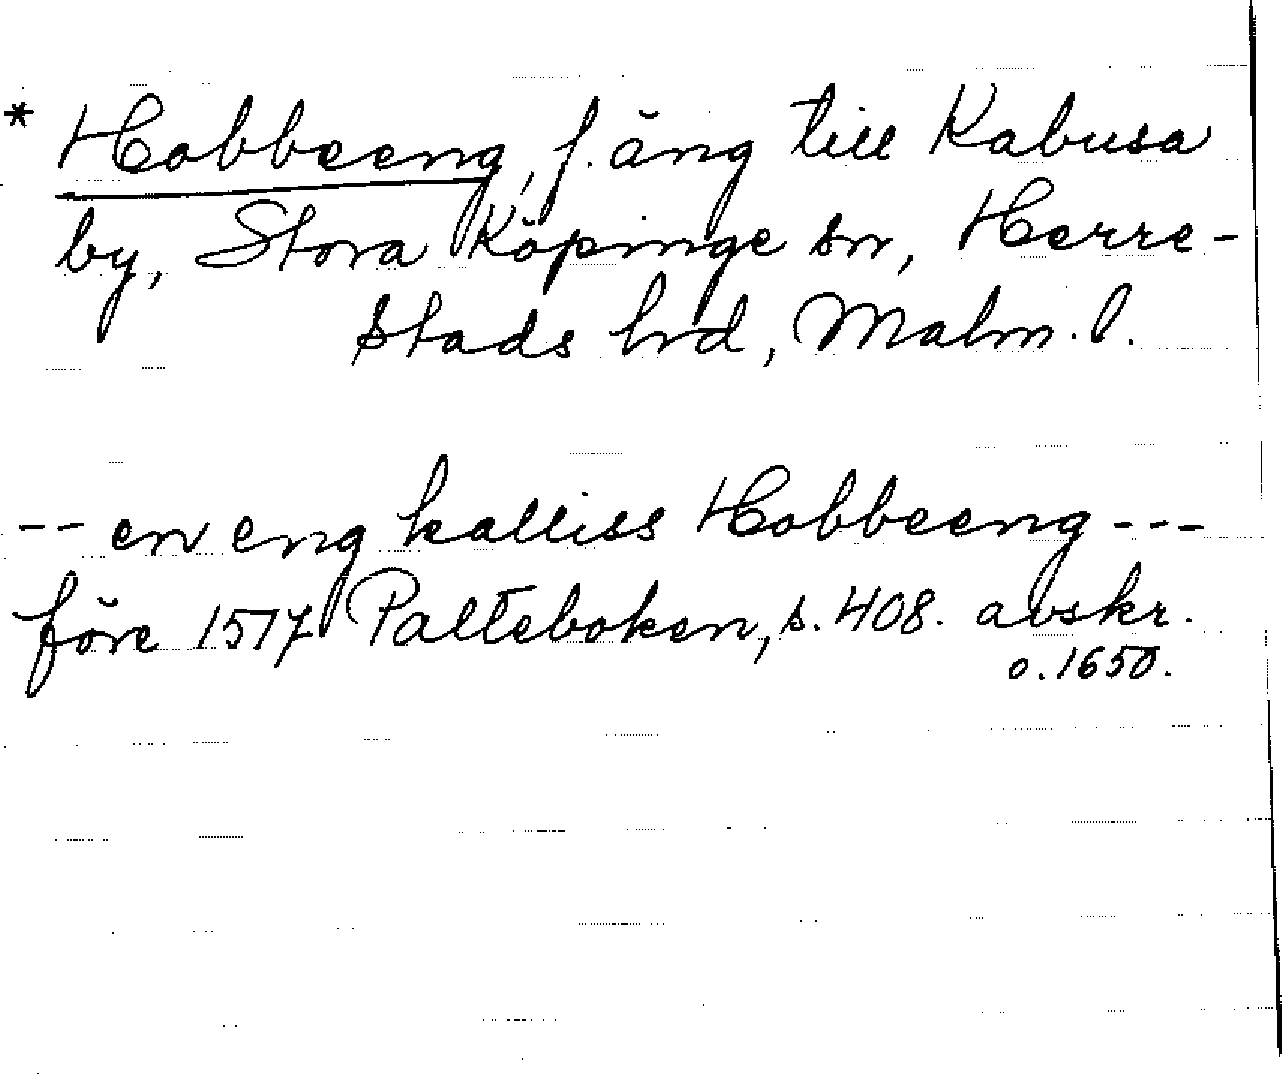 * Hobbeeng, f. äng till Kabusa
by, Stora Köpinge sn, Herre-
stads hrd, Malm. l.
-- en eng kalliss Hobbeeng ---
före 1517 Palteboken, s. 408. avskr.
o. 1650.